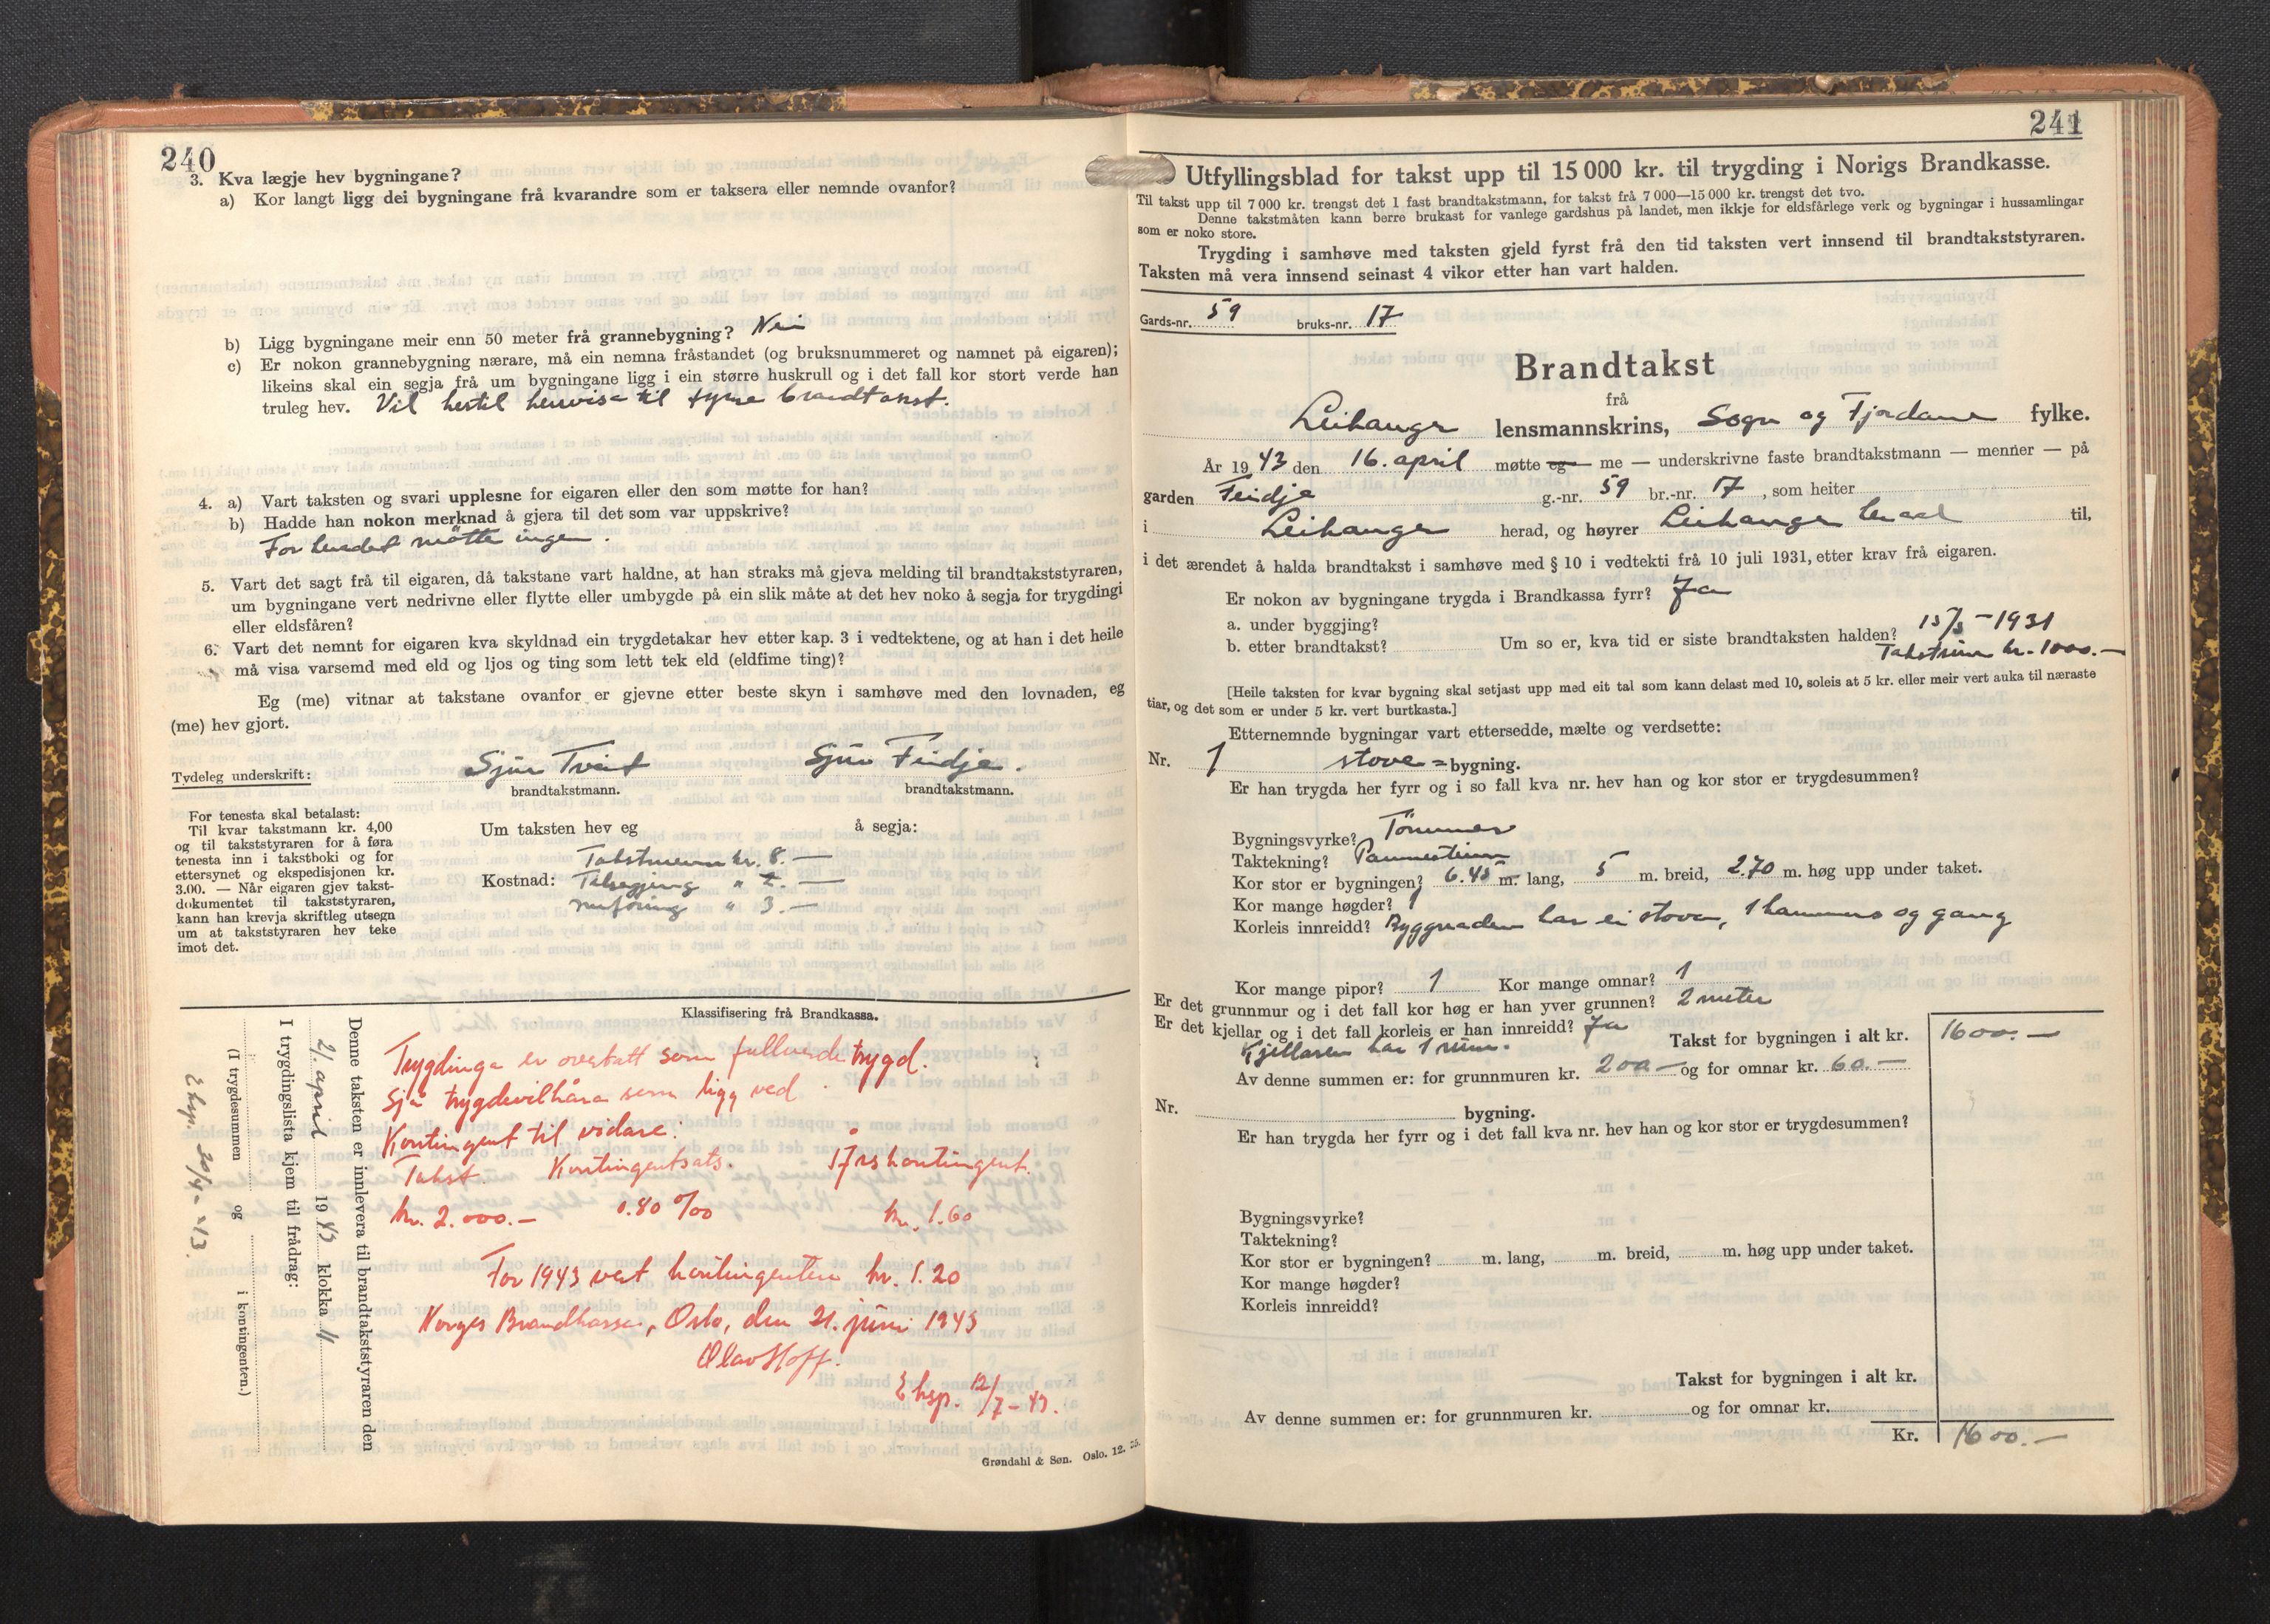 240
3. Kva lægje hev bygningane?
a) Kor langt ligg dei bygningane frå kvarandre som er taksera eller nemnde ovanfor?
b) Ligg bygningane meir enn 50 meter frå grannebygning? Nei
c) Er nokon grannebygning nærare, må ein nemna fråstandet (og bruksnummeret og namnet på eigaren);
likeins skal ein segja frå um bygningane ligg i ein større huskrull og i det fall kor stort verde han
truleg hev. Vil hertil henvise til fyrre brandtakst.
4. a) Vart taksten og svari upplesne for eigaren eller den som møtte for han?
b) Hadde han nokon merknad å gjera til det som var uppskrive?
For heradet møtte ingen.
5. Vart det sagt frå til eigaren, då takstane vart haldne, at han straks må gjeva melding til brandtakststyraren,
um bygningane vert nedrivne eller flytte eller umbygde på ein slik måte at det hev noko å segja for trygdingi
eller eldsfåren?
6. Vart det nemnt for eigaren kva skyldnad ein trygdetakar hev etter kap. 3 i vedtektene, og at han i det heile
må visa varsemd med eld og ljos og ting som lett tek eld (eldfime ting)?
Eg (me) vitnar at takstane ovanfor er gjevne etter beste skyn i samhøve med den lovnaden, eg
(me) hev gjort.
Tydeleg underskrift: Sjur Tveit Sjur Feidje.
brandtakstmann. brandtakstmann.
For tenesta skal betalast:
Til kvar takstmann kr. 4,00
og til takststyraren for å føra
tenesta inn i takstboki og for
ettersynet og ekspedisjonen kr.
3.00. — Når eigaren gjev takst-
dokumentet til takststyraren,
kann han krevja skriftleg utsegn
um at takststyraren hev teke
imot det.
Um taksten hev eg å segja:
Takstmenn kr. 8. —
Kostnad: Tilsegjing " 2. —
" 3. —
Klassifisering frå Brandkassa.
Trygdinga er overtatt som fullverde trygd.
Sjå trygdevilkåra som ligg ved
Kontingent til vidare:
Takst. Kontingentsats. 1 års kontingent.
kr. 2.000.— 0.80 ‰ kr. 1.60
For 1943 vert kontingenten kr. 1.20
Norges Brandkasse, Oslo, den 21. juni 1943
Olav Hoff.
Eksp. 12/7-43.
Denne taksten er innlevera til brandtakststyraren den
21. april 1943 klokka 11
I trygdingslista kjem til frådrag:
(I trygdesummen og i kontingenten.)
Eksp. 30/4-43.
Grøndahl & Søn. Oslo. 12. 35.
241
Utfyllingsblad for takst upp til 15 000 kr. til trygding i Norigs Brandkasse.
Til takst upp til 7 000 kr. trengst det 1 fast brandtakstmann, for takst frå 7 000—15 000 kr. trengst det tvo.
Denne takstmåten kann berre brukast for vanlege gardshus på landet, men ikkje for eldsfårlege verk og bygningar i hussamlingar
som er noko store.
Trygding i samhøve med taksten gjeld fyrst frå den tid taksten vert innsend til brandtakststyraren.
Taksten må vera innsend seinast 4 vikor etter han vart halden.
Gards-nr. 59 bruks-nr. 17
Brandtakst
frå
Leikanger lensmannskrins, Sogn og Fjordane fylke.
År 1943 den 16. april møtte eg — me — underskrivne faste brandtakstmann — menner — på
garden Feidje g.-nr. 59 br.-nr. 17, som heiter
i Leikanger herad, og høyrer Leikanger herad til,
i det ærendet å halda brandtakst i samhøve med § 10 i vedtekti frå 10 juli 1931, etter krav frå eigaren.
Er nokon av bygningane trygda i Brandkassa fyrr? Ja
a. under byggjing?
b. etter brandtakst? Um so er, kva tid er siste brandtaksten halden? 15/5-1931
Takstsum kr. 1000.—
[Heile taksten for kvar bygning skal setjast upp med eit tal som kann delast med 10, soleis at 5 kr. eller meir vert auka til næraste
tiar, og det som er under 5 kr. vert burtkasta.]
Etternemnde bygningar vart ettersedde, mælte og verdsette:
Nr. 1 stove= bygning.
Er han trygda her fyrr og i so fall kva nr. hev han og kor stor er trygdesummen?
Bygningsvyrke? Tömmer
Taktekning? Pannestein
Kor stor er bygningen? 6.45 m. lang, 5 m. breid, 2.70 m. høg upp under taket.
Kor mange høgder? 1
Korleis innreidd? Byggnaden har ei stova, 1 kammers og gang
Kor mange pipor? 1 Kor mange omnar? 1
Er det grunnmur og i det fall kor høg er han yver grunnen? 2 meter
Er det kjellar og i det fall korleis er han innreidd? Ja
Kjellaren har 1 rum. Takst for bygningen i alt kr. 1600.—
Av denne summen er: for grunnmuren kr. 200.— og for omnar kr. 60.—
Nr. bygning.
Er han trygda her fyrr og i det fall kva nr. hev han og kor stor er trygdesummen?
Bygningsvyrke?
Taktekning?
Kor stor er bygningen? m. lang, m. breid, m. høg upp under taket.
Kor mange høgder?
Korleis innreidd?
Takst for bygningen i alt kr.
Av denne summen er: for grunnmuren kr. og for omnar kr.
Kr. 1600.—